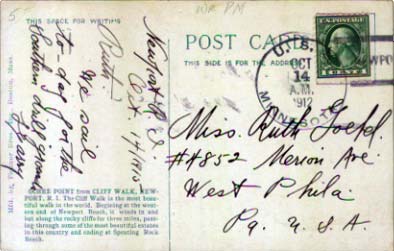 5
WR PM
THIS SPACE FOR WRITING
POST CARD
THIS SIDE IS FOR THE ADDRESS
U.S. POSTAGE
1 CENT 1
U.S.S.
OCT
14
A.M.
1912
MINNESOTA
NEWPO
Newport R.I.
Oct. 14 1915
Ruth:
We sail
to-day for the
Southern drill grounds
Harry
Miss. Ruth
##852 Merion Ave.
West Phila.
Pa. U.S.A.
POINT from CLIFF WALK, NEW-
PORT, R. I. The Cliff Walk is the most beau-
tiful walk in the world. Beginning at the west-
ern end of Newport Beach, it winds in and
out along the rocky cliffs for three miles, pass-
ing through some of the most beautiful estates
in this country and ending at Spouting Rock
Beach.
Boston, Mass.